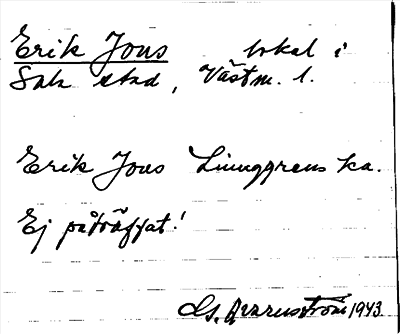 Erik Jons lokal i
Sala stad, Västm. l.
Erik Jons Ljunggrens ka.
Ej påträffat!
1943